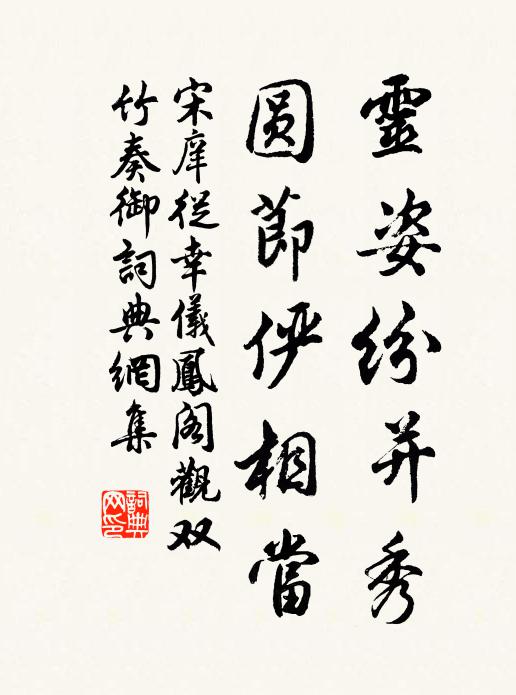 靈姿紛并秀
圓節俨相當
宋庠從幸儀鳳阁觀双
竹奏御詞典網集
詞典
网印